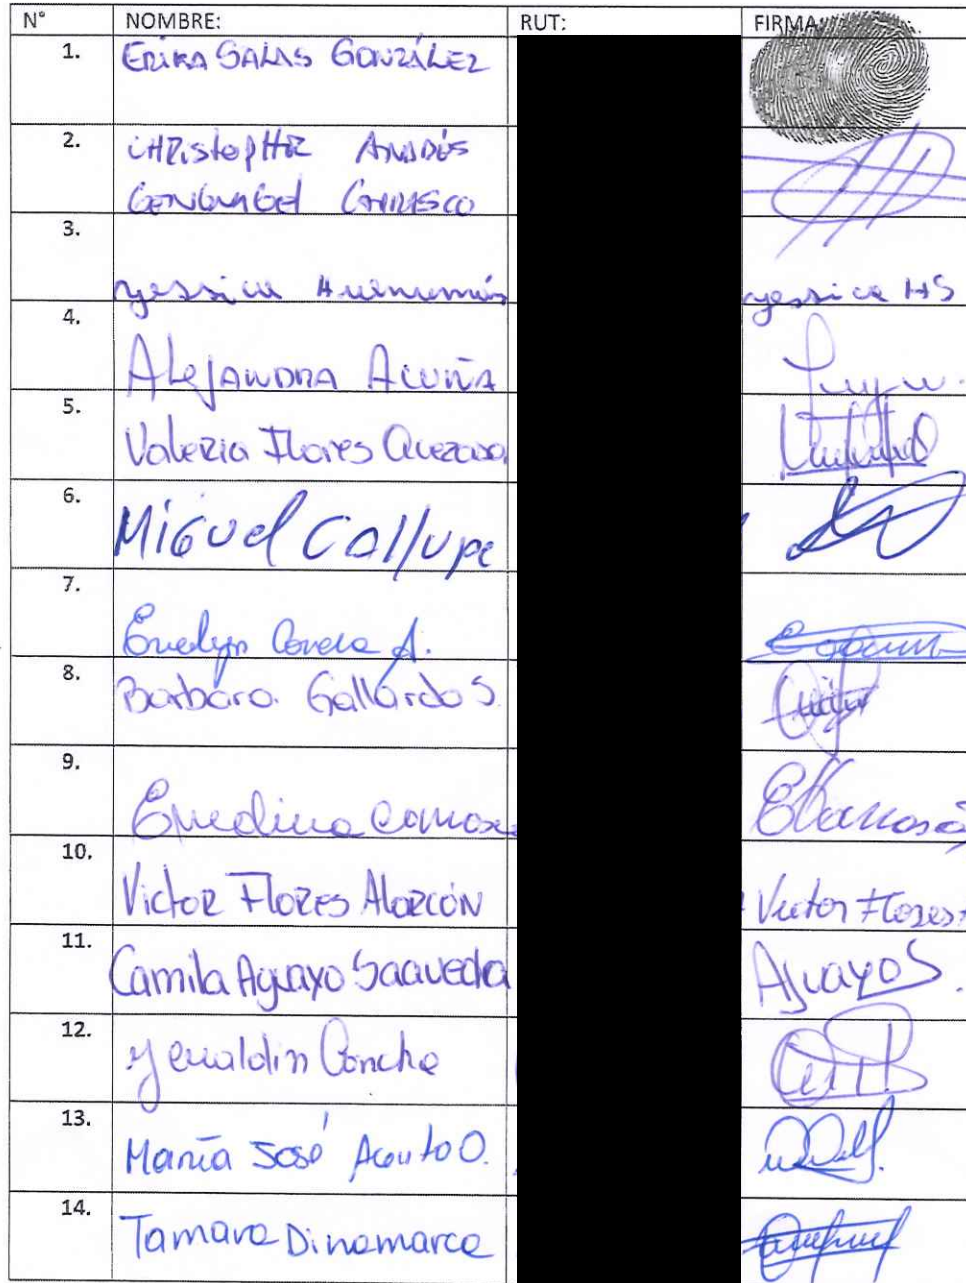 N° NOMBRE: RUT: FIRMA:
1. ERIKA SALAS GONZÁLEZ
2. CHRistopHER ANDRÉS
CARRASCO
3.
yessica yessica HS
4.
AleJANDRA ACUÑA
5.
Valeria Flores Quezada
6.
MiGuel Callupe
7.
Evelyn A.
8. Barbara Gallardo S.
9.
10.
Victor Flores Alarcón Victor Flores
11.
Camila Aguayo Saavedra Aguayo S.
12.
Yeraldin Concha
13.
María José O.
14.
Tamara Dinamarca